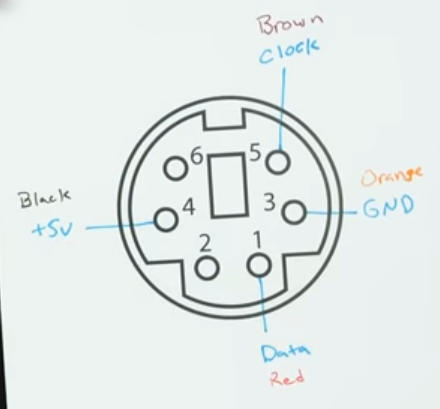 Brown
Clock
6
5
Orange
Black
4
3
GND
+5v
2
1
Data
Red